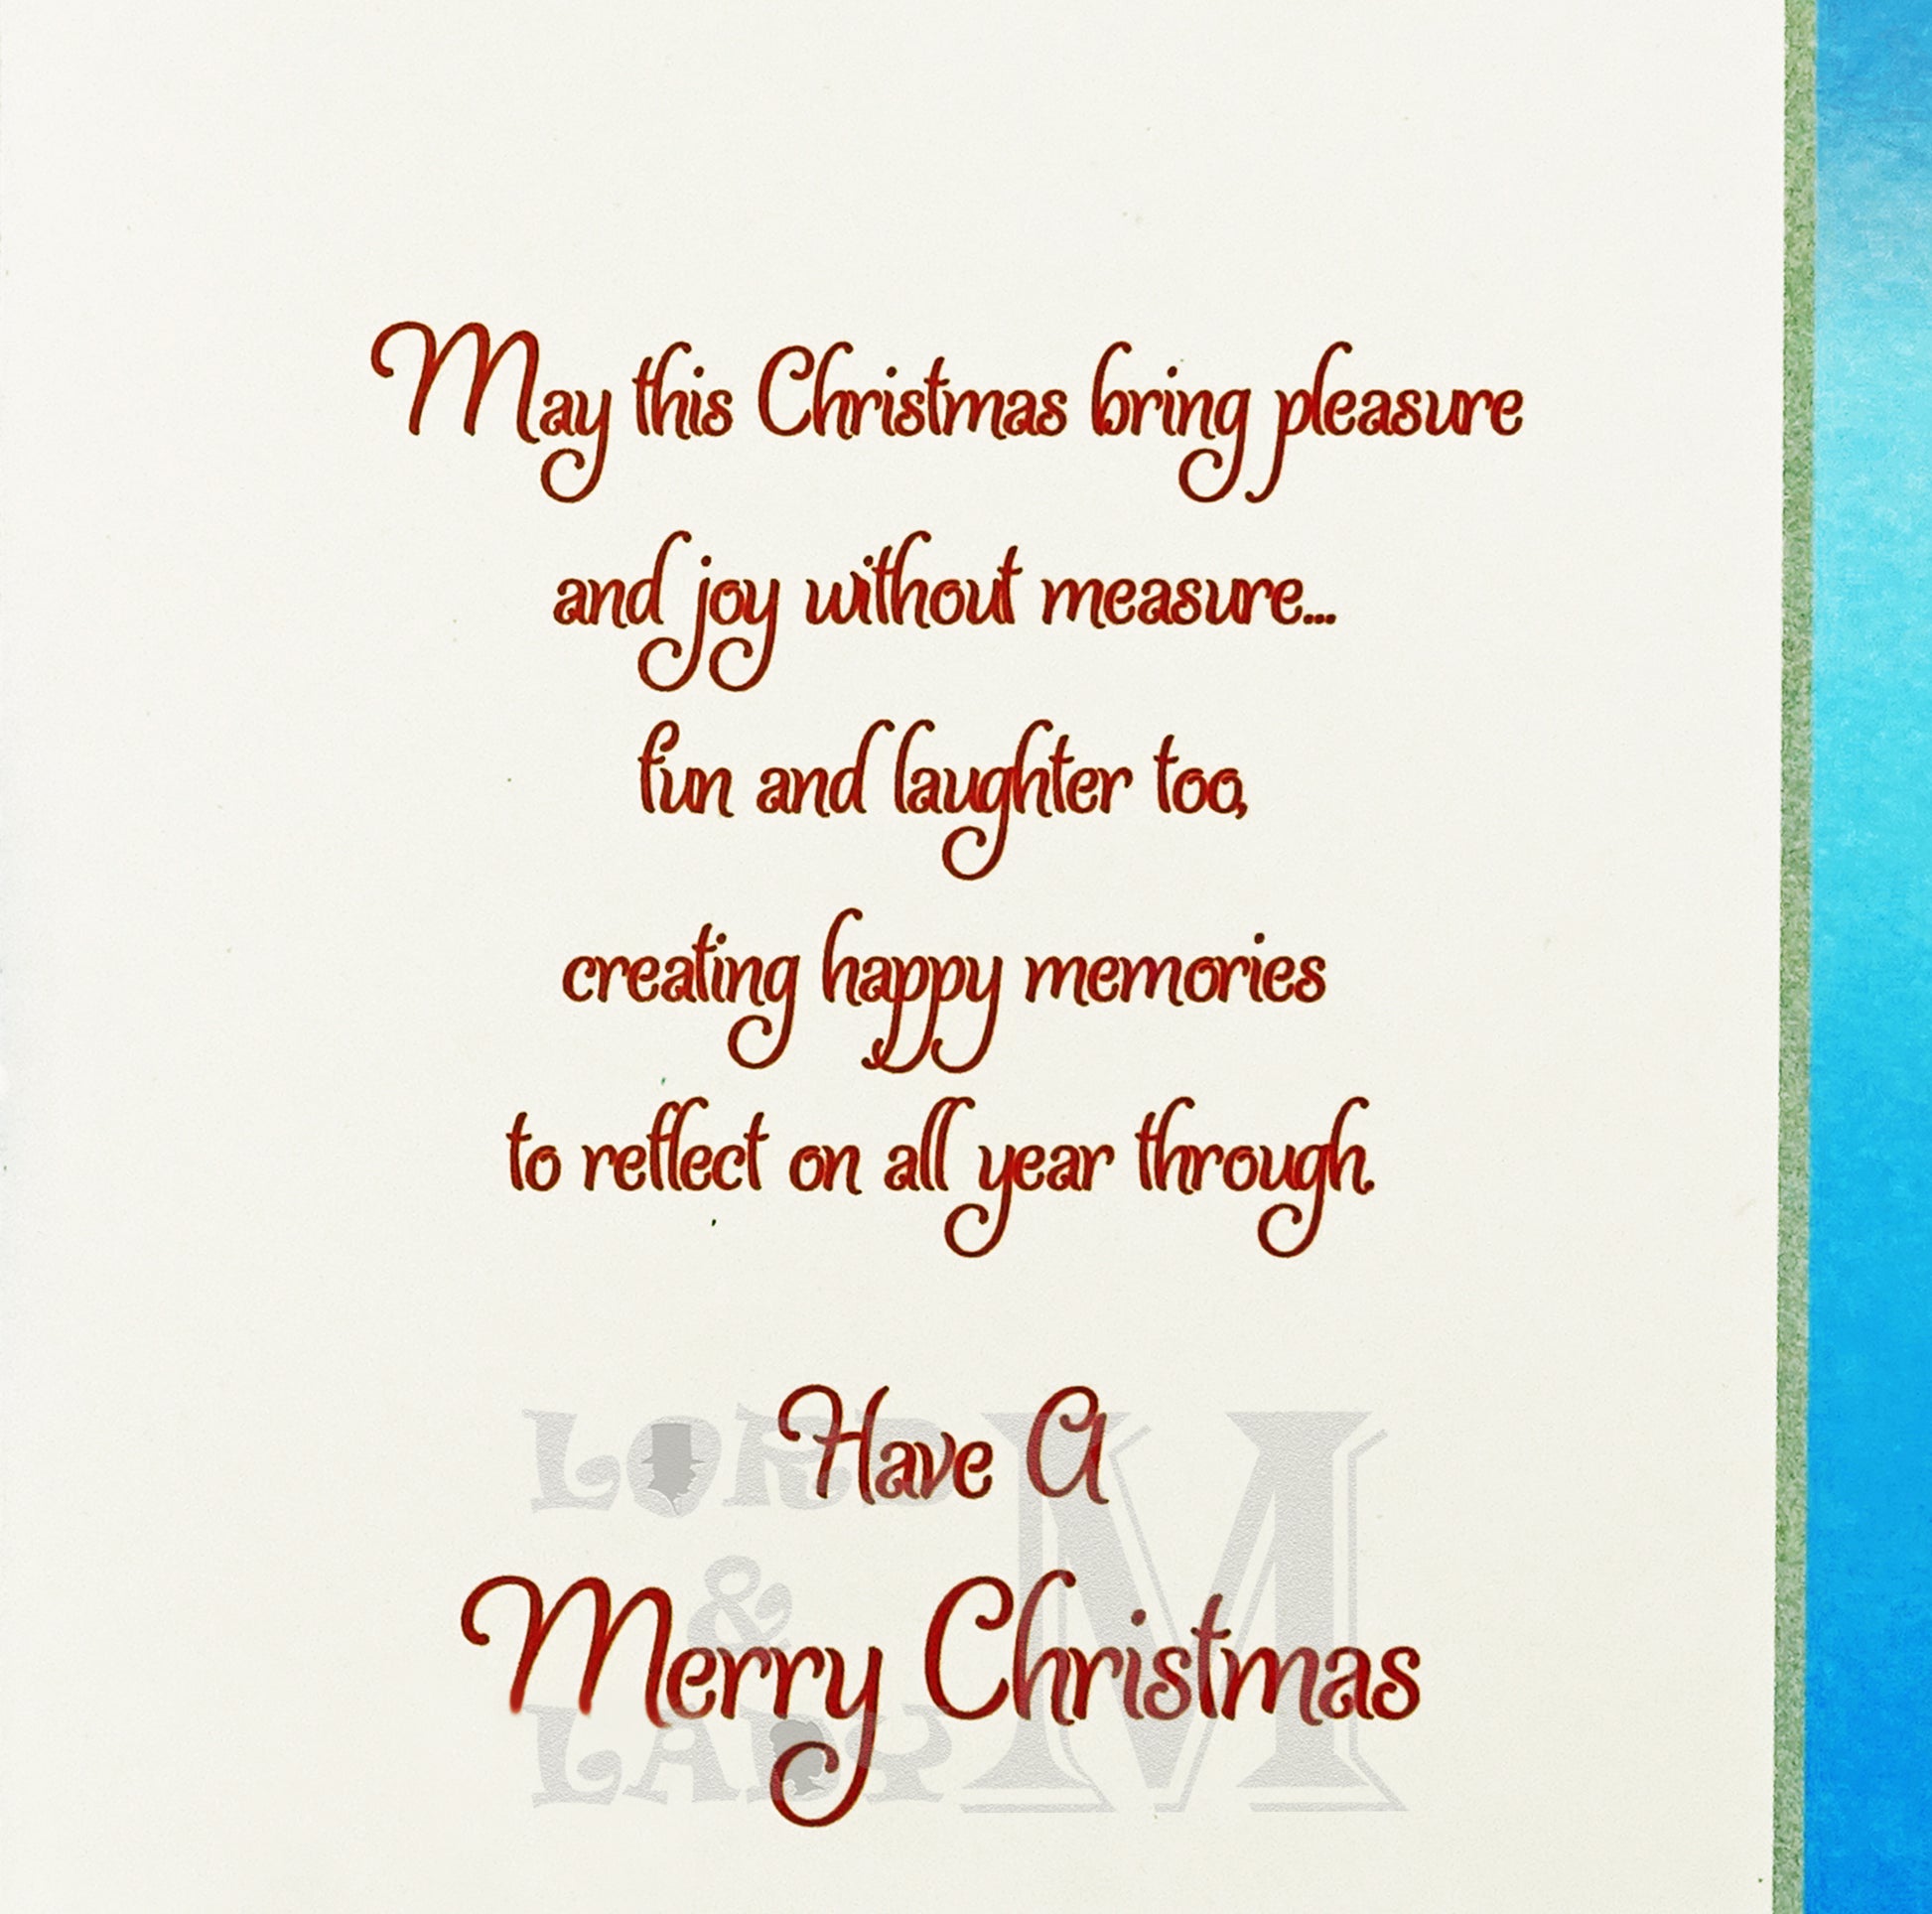 May this Christmas bring pleasure
and joy without measure...
fun and laughter too,
creating happy memories
to reflect on all year through.
Have A
Merry Christmas
LORD
&
LADY
M